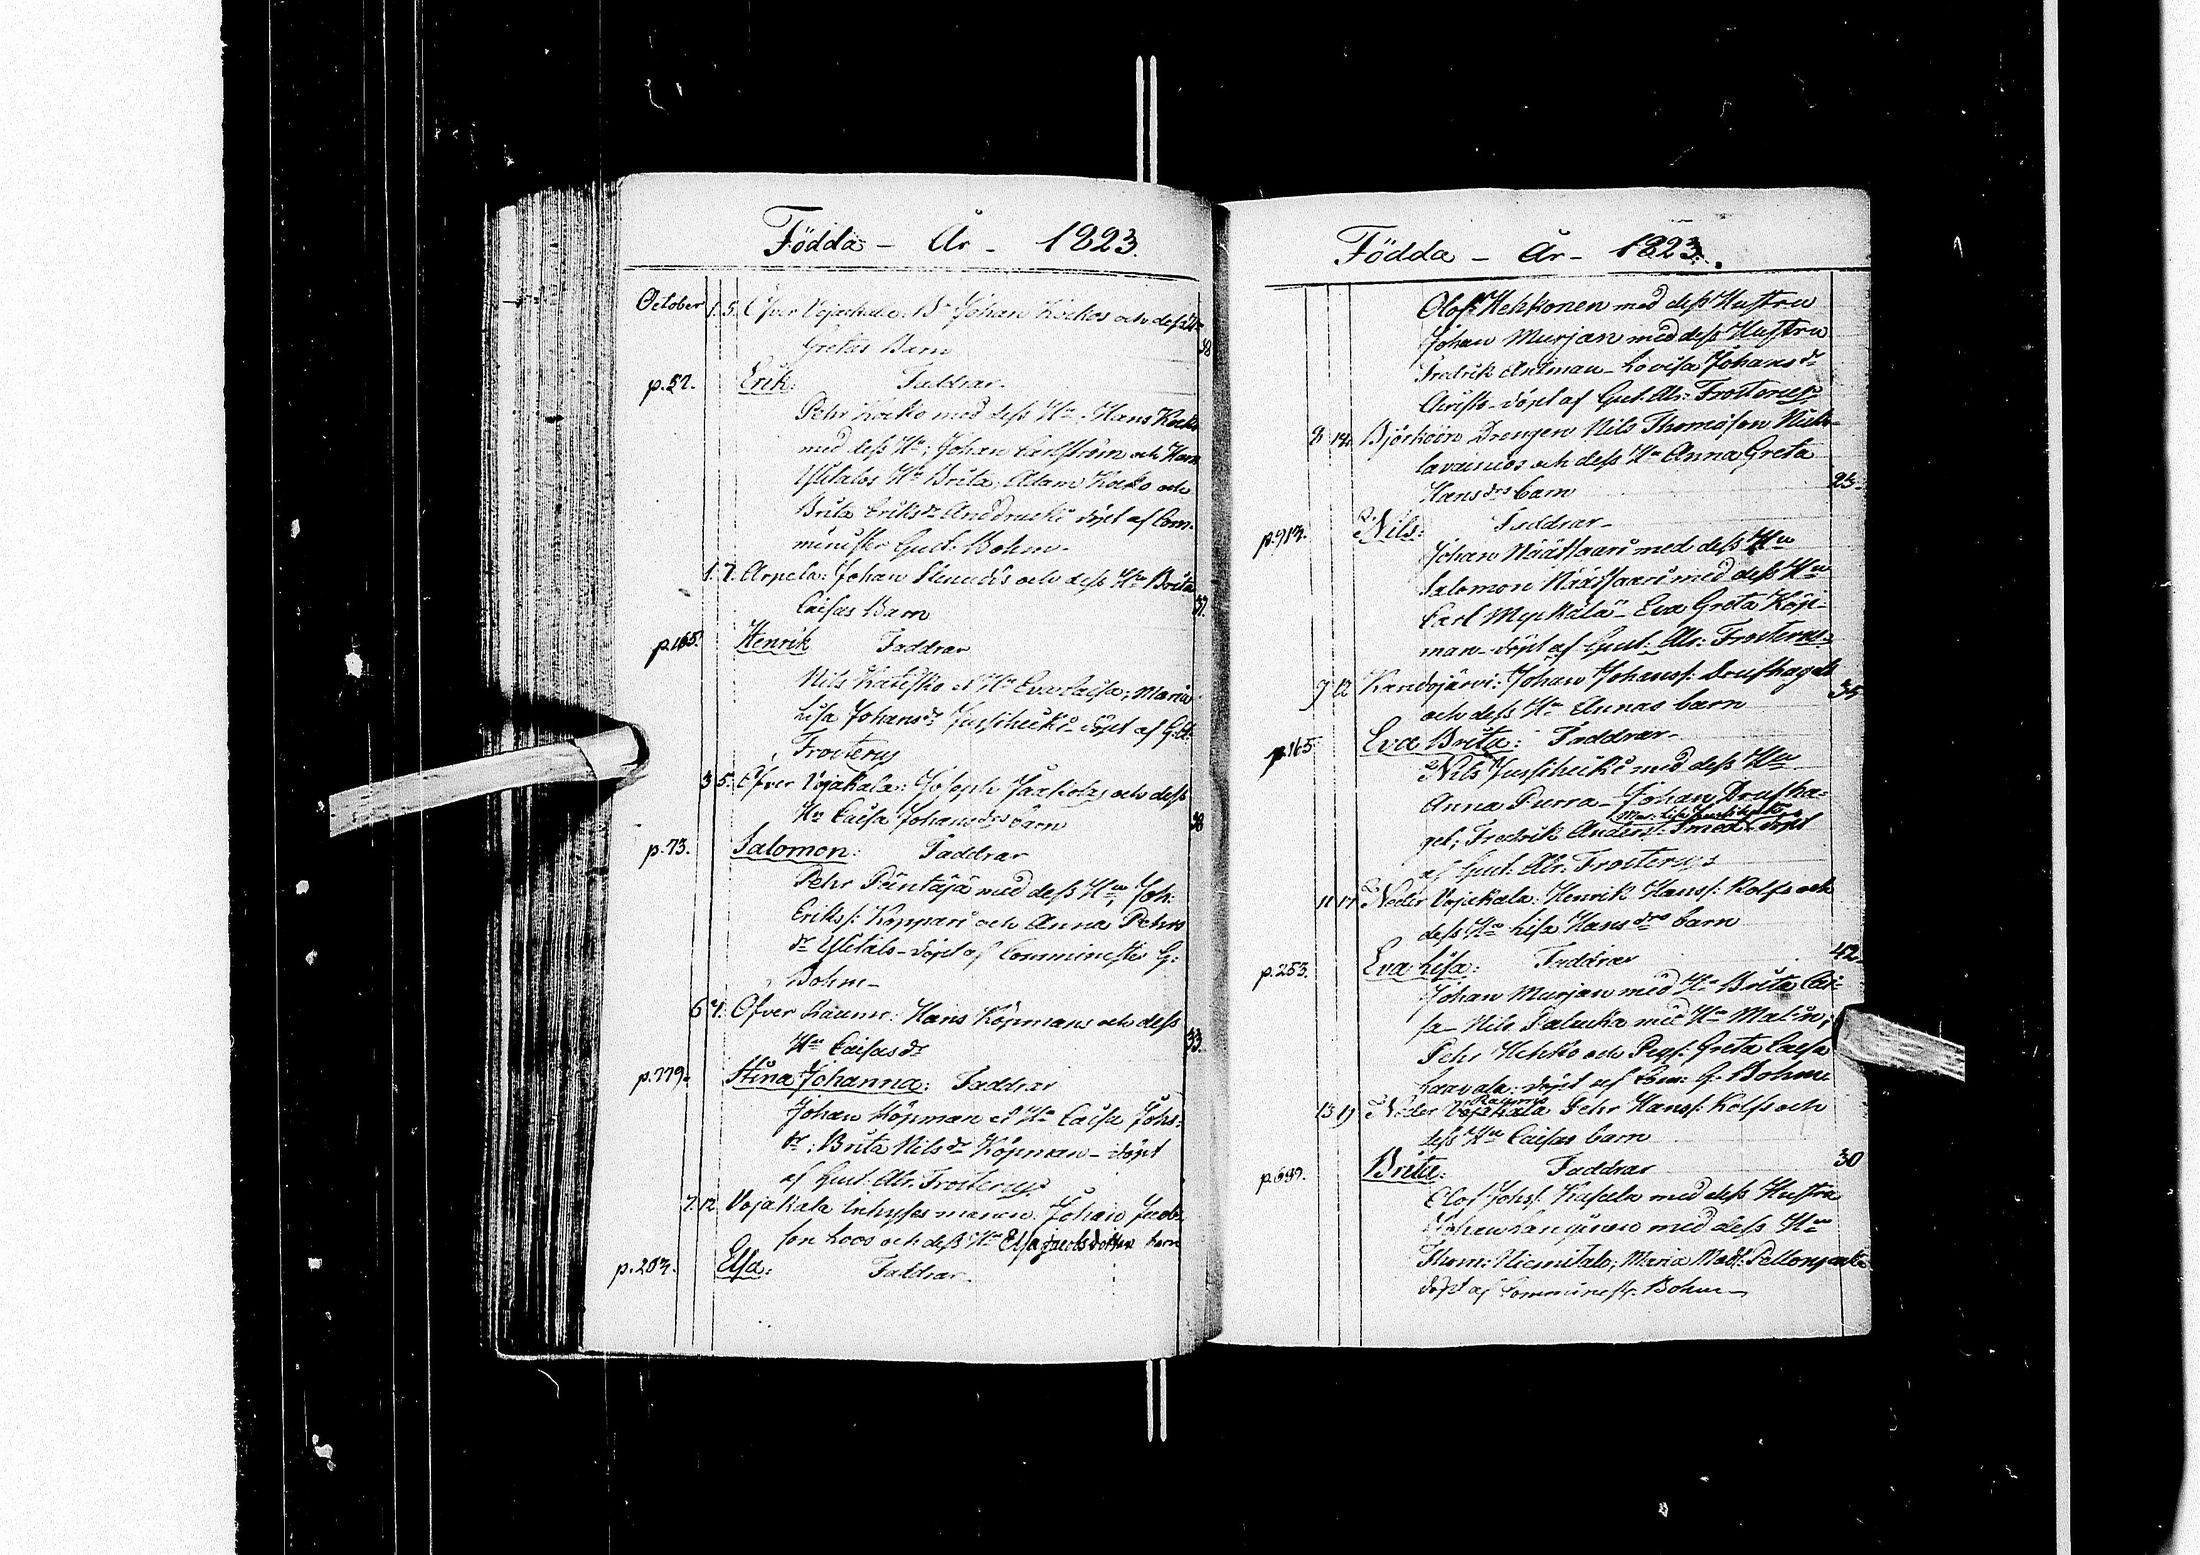 Födda - År - 1823.
October 1. 5. Öfver Vojakala: B. Johan Kockos och dess Hu
Gretas Barn 38
p.57. Erik: Faddrar.
Pehr Kocko med dess Hu; Hans Kocko
med dess Hu; Johan Carlström och Hans
Ylitalos Hu Brita, Adam Kocko och
Brita Eriksdr döpt af Com-
minister Gust. Bohm.
1. 7. Arpela: Johan och dess Hu Brita
Caisas Barn 37.
p.165. Henrik Faddrar
Nils et Hu Eva Caisa; Maria
Lisa Johansdr Jussiheiki döpt af G. A.
Frosterus
3 5. Öfver Vojakala: Joseph och dess
Hu Caisa Johansdrs barn 38
p.73. Salomon: Faddrar
Pehr Päntäjä med dess Hu, Joh:
Erikss: Koppari och Anna Pehrs
dr Ylitalo - döpt af Comminister G:
Bohm -
6 7. Öfver Raumo: Hans Köpmans och dess
Hu Caisas dr 33.
p.779. Stina Johanna: Faddrar
Johan Köpman et Hu Caisa Johs:
dr; Brita Nilsdr Köpman - döpt
af Gust: Abr. Frosterus
7. 12 Vojakala Inhyses mannen Johan Jacob-
son Loos och dess Hu Elsa Jacobsdotters barn
p.203. Elsa: Faddrar
Födda - År - 1823.
Olof Hehkonen med dess Hustru
Johan Murjan med dess Hustru
Fredrik Lovisa Johansdr
döpt af Gust. Abr: Frosterus
8 Björkön Drengen Nils Thomasson
och dess Hu Anna Greta
Hansdrs barn 23.
p.913. Nils: Faddrar -
Johan Näätsaari med dess Hu
Salomon Näätsaari med dess Hu
Carl Myckälä - Eva Greta Köp-
man - döpt af Gust: Abr: Frosterus -
9 12 Kandojärvi: Johan Johanss: Drufhagel
och dess Hu Annas barn 35
p.165 Eva Brita: Faddrar -
Nils Jussiheiki med dess Hu
Anna Purra - Johan Drufha-
gel; Fredrik Anderss: Smed - döpt
af Gust. Abr. Frosterus
11 17 Neder Vojakala: Henrik Hanss: Rolfs och
dess Hu Lisa Hansdrs barn
p.253. Eva Lisa: Faddrar 42.
Johan Murjan med Hu Brita Cai-
sa - Nils med Hu Malin;
Pehr Hehko och Pigs: Greta Caisa
Laavala: döpt af Com: G. Bohm
13 19 Neder Vojakala Raumo Pehr Hanss: Rolfs och
dess Hu Caisas barn
p.699. Brita: Faddrar 30
Olof Johss: med dess Hustru
Johan med dess Hu
Thom: Niemitalo; Maria
döpt af Comminist. Bohm -